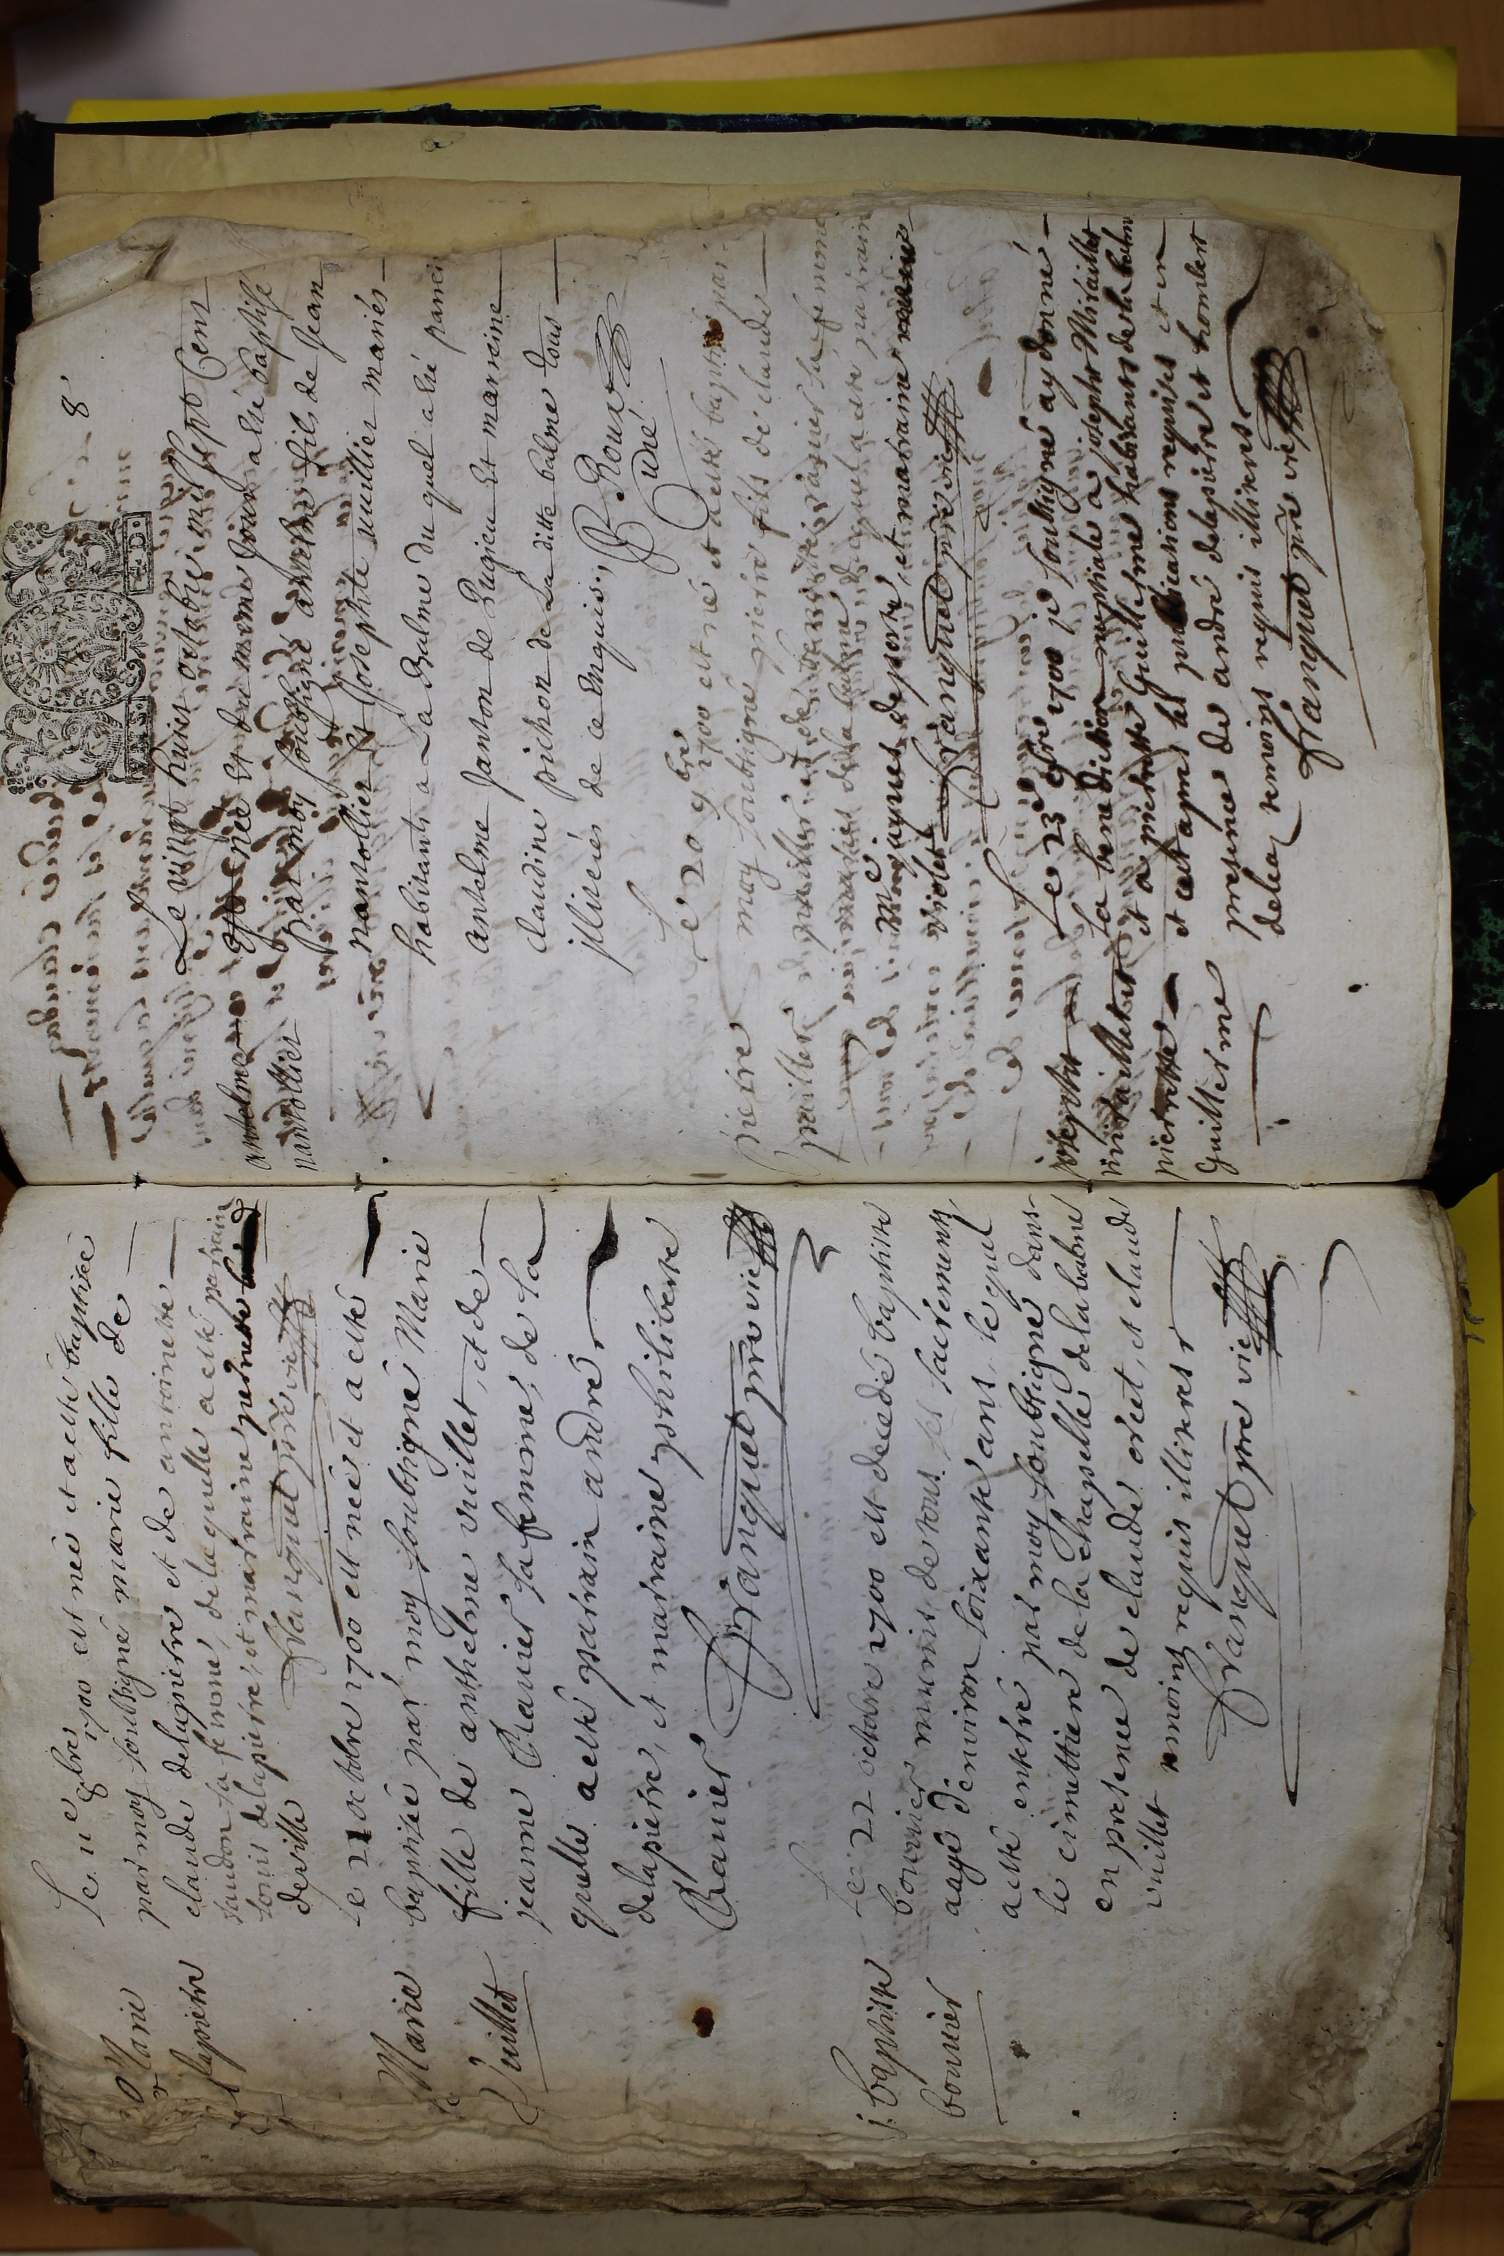 Marie
delapierre
Le 11e 8bre 1700 est neé et a esté baptiseé
par moy soubsigné marie fille de
claude delapierre et de antoinette
Jandon sa femme, de laquelle a esté parrain
louis delapierre, et marraine pernette
deville
Franquet pre vic
Marie
Vuillet
le 21 octobre 1700 est neé et a esté
baptiseé par moy soubsigné Marie
fille de anthelme vuillet, et de
jeanne Clavier sa femme, de la
quelle a esté parrain andré
delapierre, et marraine philiberte
Clavier
Franquet pre vic
j. baptiste
bouvier
Le 22 octobre 1700 est decedé baptiste
bouvier munis de tous ses sacrements
aagé denviron soixante ans, lequel
a esté enterré par moy soubsigné dans
le cimettiere de la chapelle de la balme
en presence de claude et claude
vuillet temoins requis illiteres
Franquet pre vic
8
anthelme
nantollier
Le vingt huit octobre mil sept Cent
est née et du meme jour a été baptisé
Par moy soubsigné antelme fils de Jean
nantollier et Josephte vuillier mariés
habitants a La Balme du quel a été parain
antelme Janton de Lugieu et marreine
claudine pichon de La ditte balme tous
jlliterés de ce Enquis.
Roux
Curé
pierre
paillet
Le 20 9bre 1700 est né et a esté baptisé par
moy soubsigné pierre fils de claude
paillet et de sa femme
mariés de la balme duquel a esté parrain
jaques deporte, et marraine
violet
Franquet pre vic
joseph
miraillet et
pierrette
Guillerme
Le 23e 9bre 1700 je soubsigné ay donné
la benediction nuptiale a joseph Miraillet
et a pierrette Guillerme habitants de la balme
et ce apres les publications requises et en
presence de andré delapierre et humbert
delea temoins requis illiteres
Franquet pre vic